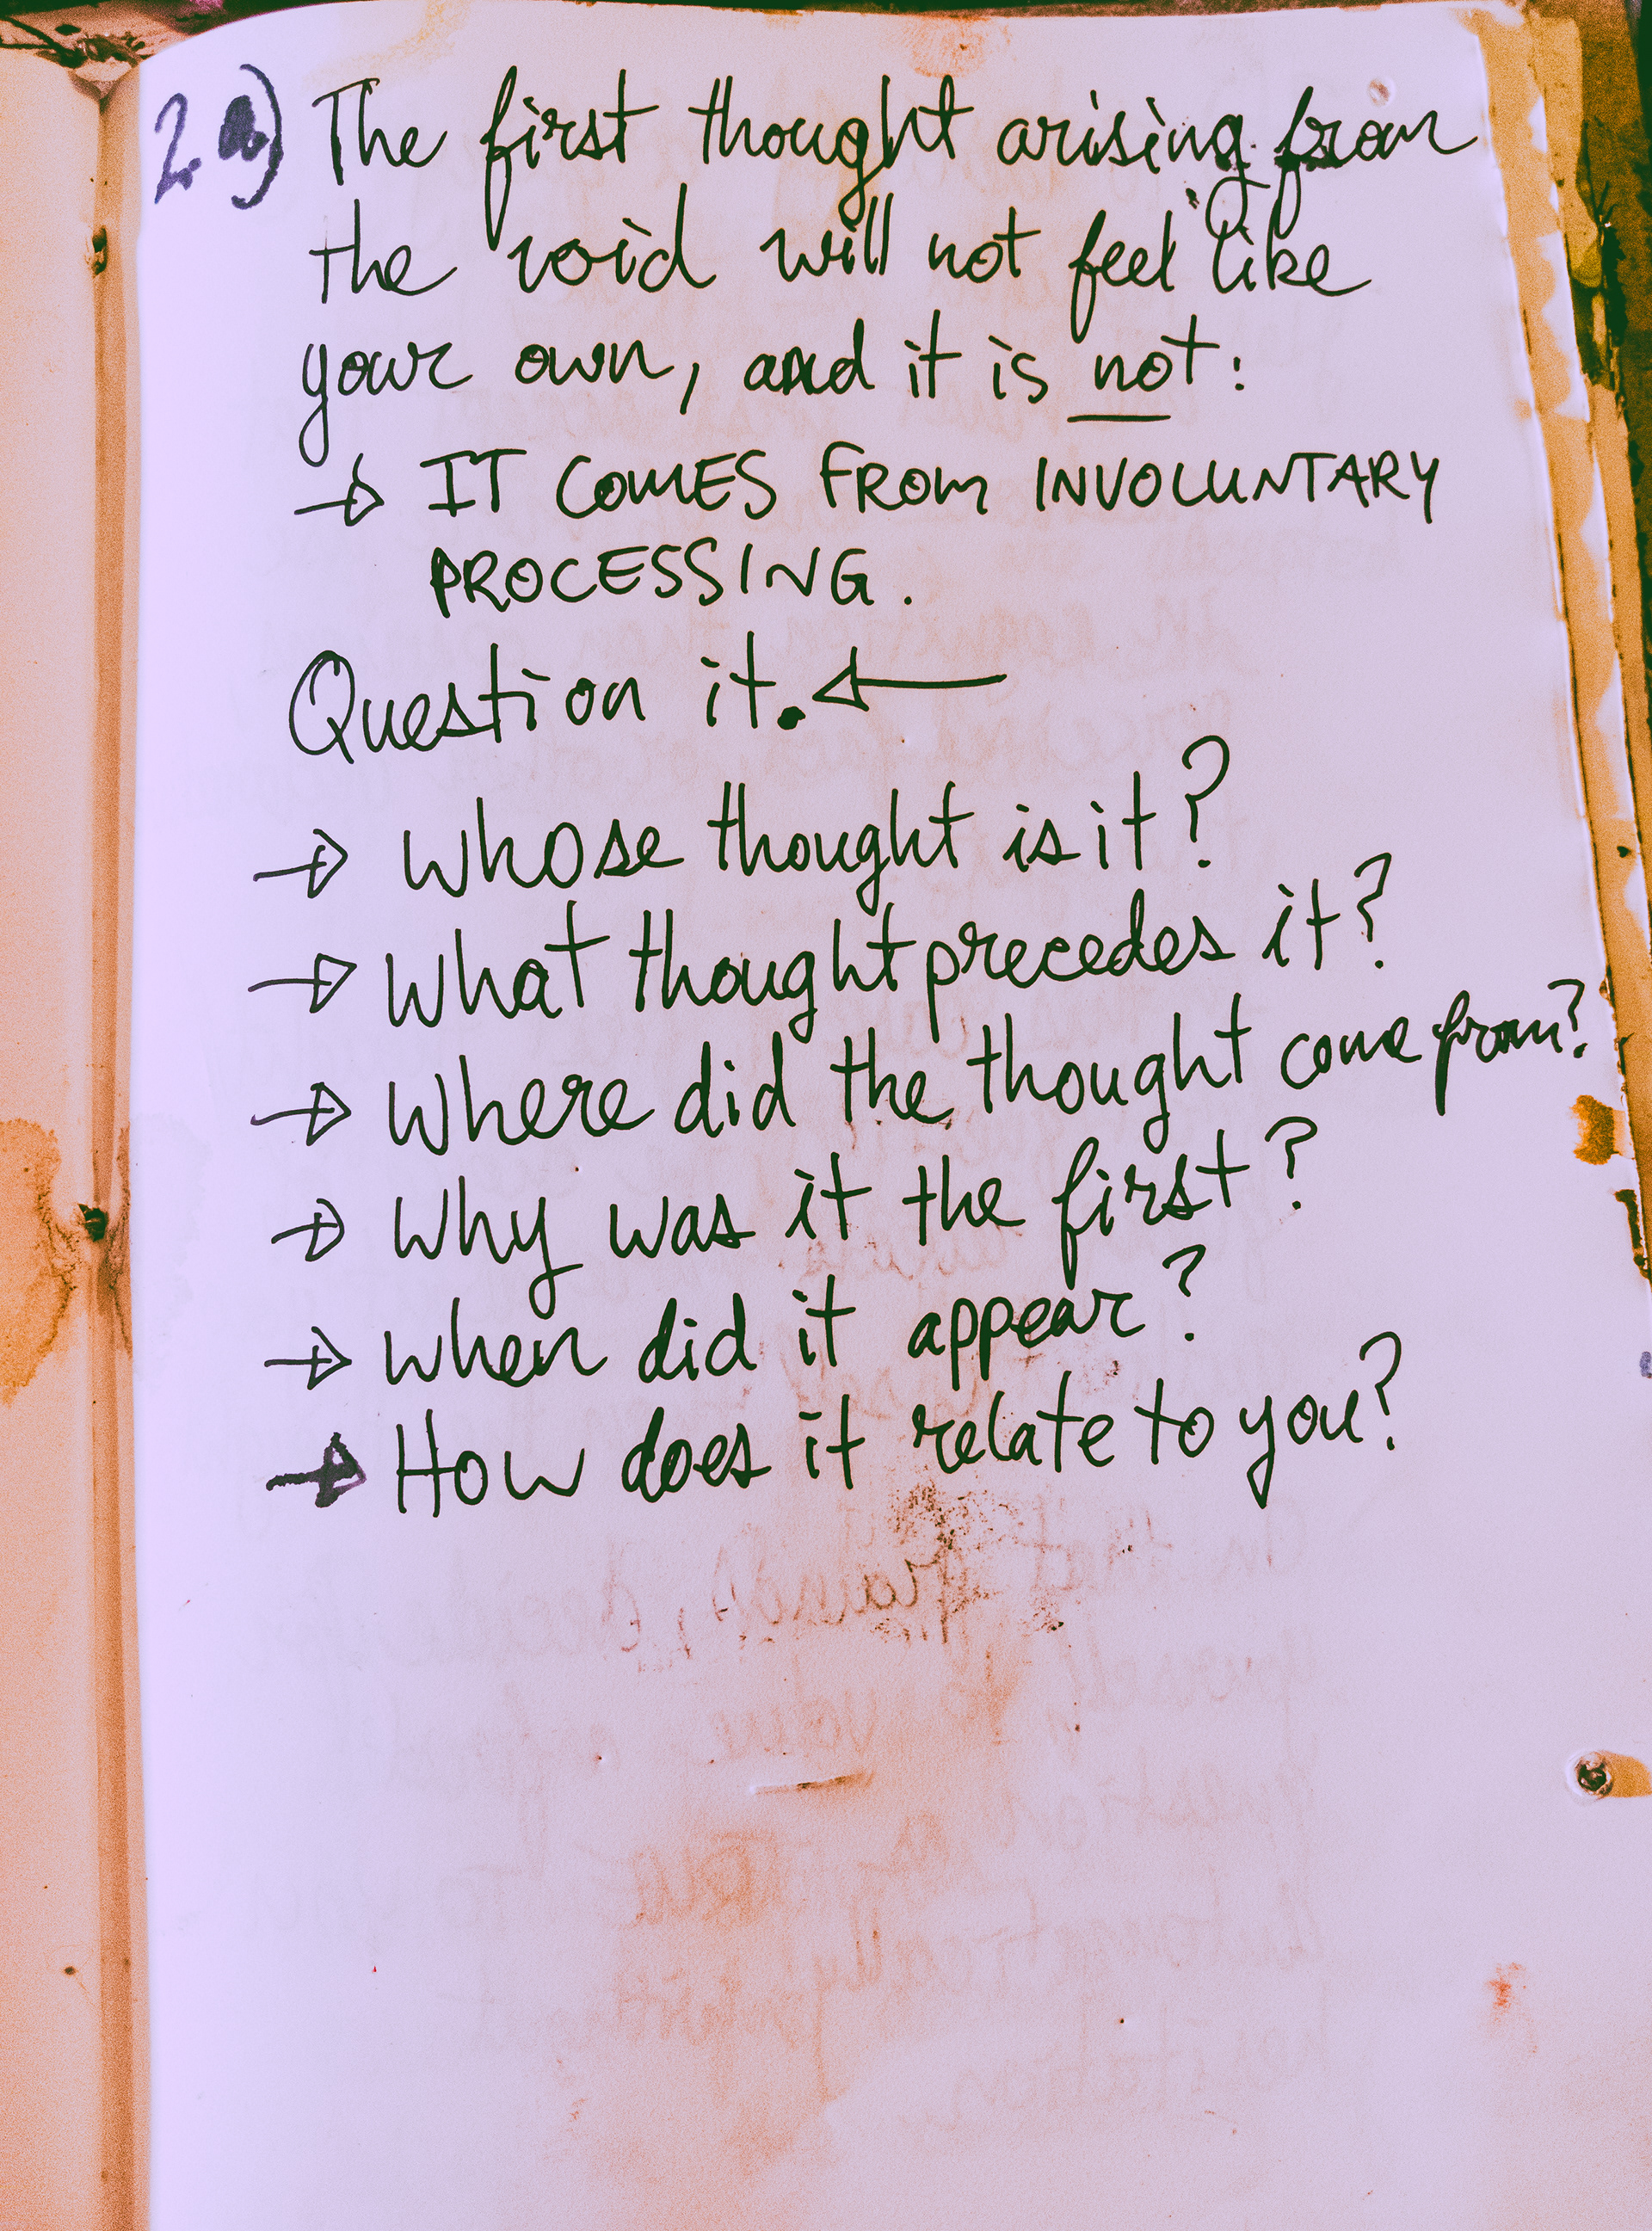 2.a) The first thought arising from
the void will not feel like
your own, and it is not:
→ IT COMES FROM INVOLUNTARY
PROCESSING.
Question it. ←
→ Whose thought is it?
→ What thought precedes it?
→ Where did the thought come from?
→ Why was it the first?
→ When did it appear?
→ How does it relate to you?